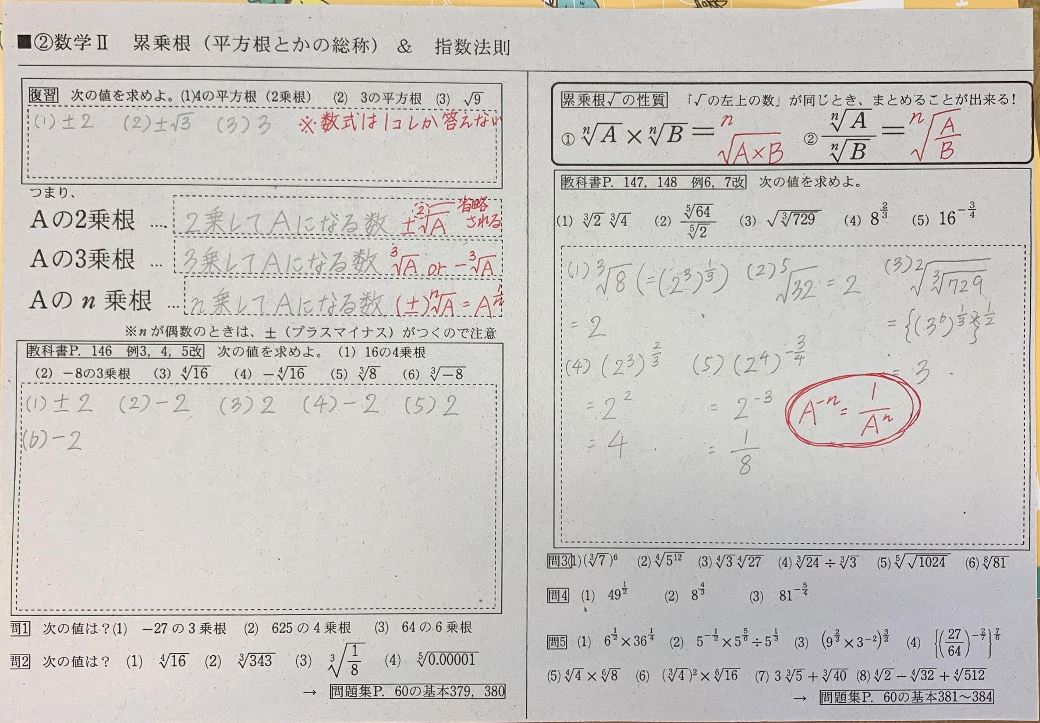 ■②数学Ⅱ 累乗根（平方根とかの総称）＆ 指数法則
復習 次の値を求めよ。(1)4の平方根（2乗根） (2) 3の平方根 (3) √9
(1) ±2 (2) ±√3 (3) 3 ※数式は1コしか答えない
つまり、
Aの2乗根 …. 2乗してAになる数 ±²√A 省略される
Aの3乗根 … 3乗してAになる数 ³√A or -³√A
Aの n 乗根 … n乗してAになる数 (±)ⁿ√A = A^{1/n}
※nが偶数のときは、±（プラスマイナス）がつくので注意
教科書P. 146 例3, 4, 5改 次の値を求めよ。 (1) 16の4乗根
(2) −8の3乗根 (3) ⁴√16 (4) −⁴√16 (5) ³√8 (6) ³√−8
(1) ±2 (2) −2 (3) 2 (4) −2 (5) 2
(6) −2
問1 次の値は？(1) −27の3乗根 (2) 625の4乗根 (3) 64の6乗根
問2 次の値は？ (1) ⁴√16 (2) ³√343 (3) ³√(1/8) (4) ⁵√0.00001
→ 問題集P. 60の基本379, 380
累乗根√の性質 「√の左上の数」が同じとき、まとめることが出来る!
① ⁿ√A × ⁿ√B = ⁿ√(A×B) ② ⁿ√A / ⁿ√B = ⁿ√(A/B)
教科書P. 147, 148 例6, 7改 次の値を求めよ。
(1) ³√2 ³√4 (2) ⁵√64 / ⁵√2 (3) √(³√729) (4) 8^{2/3} (5) 16^{−3/4}
(1) ³√8 (=(2³)^{1/3}) (2) ⁵√32 = 2 (3) ²√(³√729)
= 2 = {(3⁶)^{1/3}}^{1/2}
(4) (2³)^{2/3} (5) (2⁴)^{−3/4} = 3
= 2² = 2⁻³ A⁻ⁿ = 1/Aⁿ
= 4 = 1/8
問3(1)(³√7)⁶ (2) ⁴√5¹² (3) ⁴√3 ⁴√27 (4) ³√24 ÷ ³√3 (5) ⁵√(√1024) (6) ⁸√81
問4 (1) 49^{1/2} (2) 8^{4/3} (3) 81^{−5/4}
問5 (1) 6^{1/2}×36^{1/4} (2) 5^{−1/2}×5^{5/6}÷5^{1/3} (3) (9^{2/3}×3⁻²)^{3/2} (4) {(27/64)^{−2/7}}^{7/6}
(5) ⁴√4 × ⁶√8 (6) (³√4)² × ⁶√16 (7) 3 ³√5 + ³√40 (8) ⁴√2 − ⁴√32 + ⁴√512
→ 問題集P. 60の基本381～384